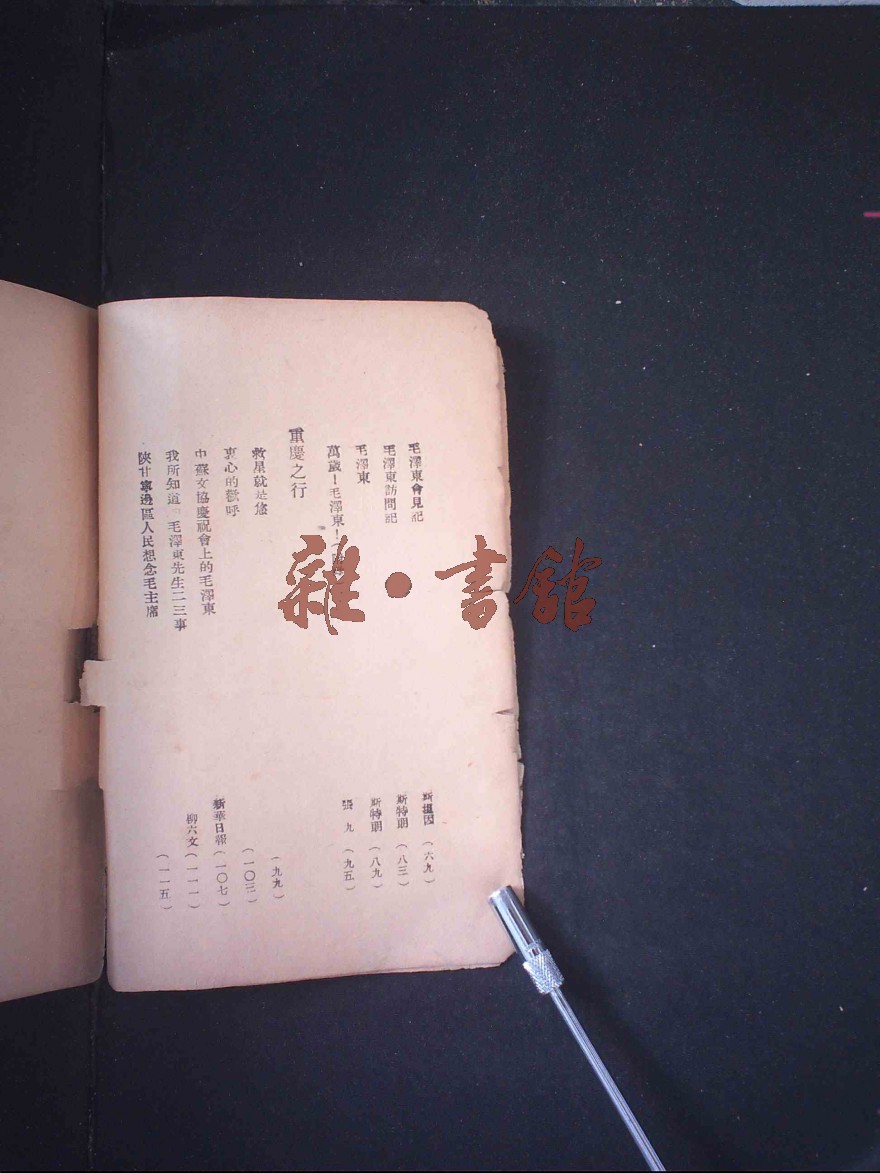 毛澤東會見記 斯坦因 (六九)
毛澤東訪問記 斯特朗 (八三)
毛澤東 斯特朗 (八九)
萬歲！毛澤東！ 張九 (九五)
重慶之行
救星就是您 (九九)
衷心的歡呼 (一〇三)
中蘇文協慶祝會上的毛澤東 新華日報 (一〇七)
我所知道 毛澤東先生二三事 柳六文 (一一一)
陝甘寧邊區人民想念毛主席 (一一五)
雜·書館